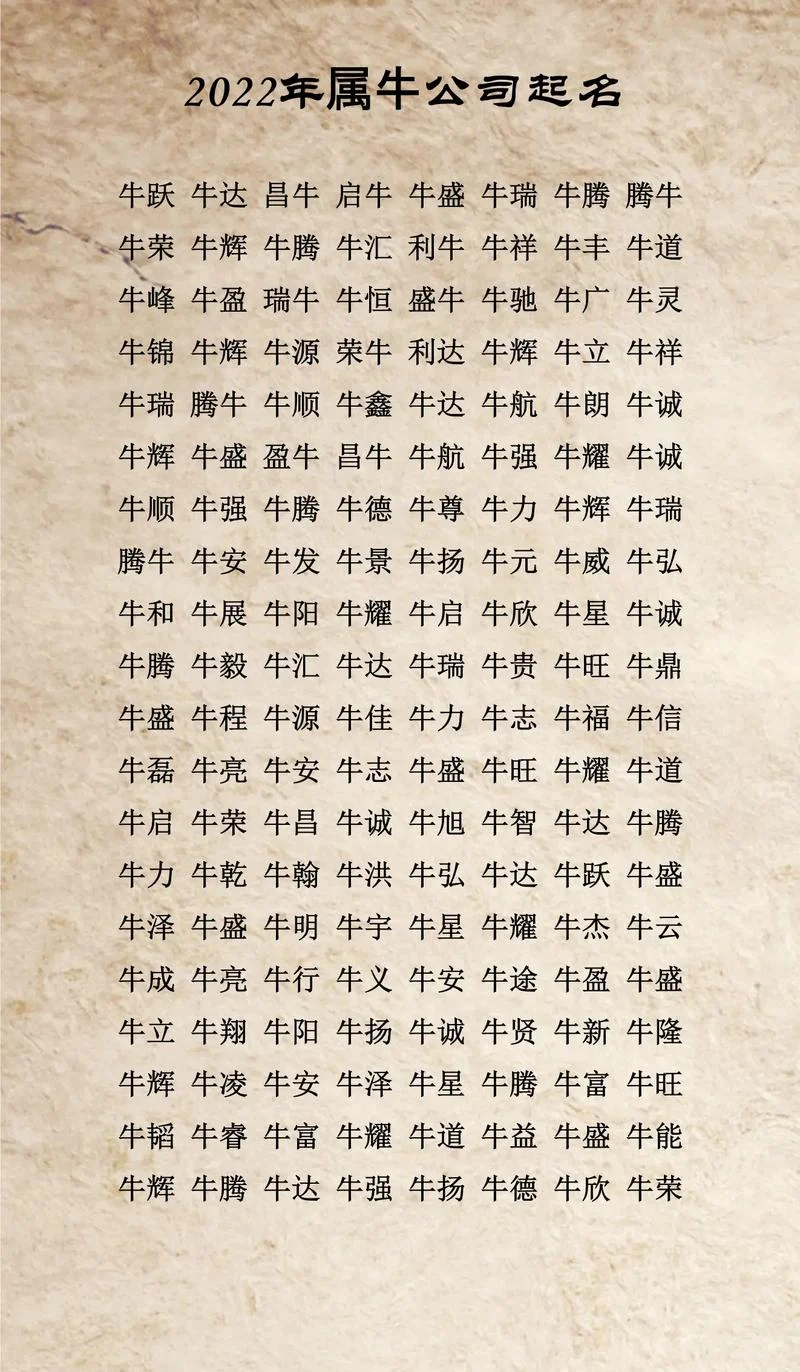 2022年属牛公司起名
牛跃 牛达 昌牛 启牛 牛盛 牛瑞 牛腾 腾牛
牛荣 牛辉 牛腾 牛汇 利牛 牛祥 牛丰 牛道
牛峰 牛盈 瑞牛 牛恒 盛牛 牛驰 牛广 牛灵
牛锦 牛辉 牛源 荣牛 利达 牛辉 牛立 牛祥
牛瑞 腾牛 牛顺 牛鑫 牛达 牛航 牛朗 牛诚
牛辉 牛盛 盈牛 昌牛 牛航 牛强 牛耀 牛诚
牛顺 牛强 牛腾 牛德 牛尊 牛力 牛辉 牛瑞
腾牛 牛安 牛发 牛景 牛扬 牛元 牛威 牛弘
牛和 牛展 牛阳 牛耀 牛启 牛欣 牛星 牛诚
牛腾 牛毅 牛汇 牛达 牛瑞 牛贵 牛旺 牛鼎
牛盛 牛程 牛源 牛佳 牛力 牛志 牛福 牛信
牛磊 牛亮 牛安 牛志 牛盛 牛旺 牛耀 牛道
牛启 牛荣 牛昌 牛诚 牛旭 牛智 牛达 牛腾
牛力 牛乾 牛翰 牛洪 牛弘 牛达 牛跃 牛盛
牛泽 牛盛 牛明 牛宇 牛星 牛耀 牛杰 牛云
牛成 牛亮 牛行 牛义 牛安 牛途 牛盈 牛盛
牛立 牛翔 牛阳 牛扬 牛诚 牛贤 牛新 牛隆
牛辉 牛凌 牛安 牛泽 牛星 牛腾 牛富 牛旺
牛韬 牛睿 牛富 牛耀 牛道 牛益 牛盛 牛能
牛辉 牛腾 牛达 牛强 牛扬 牛德 牛欣 牛荣